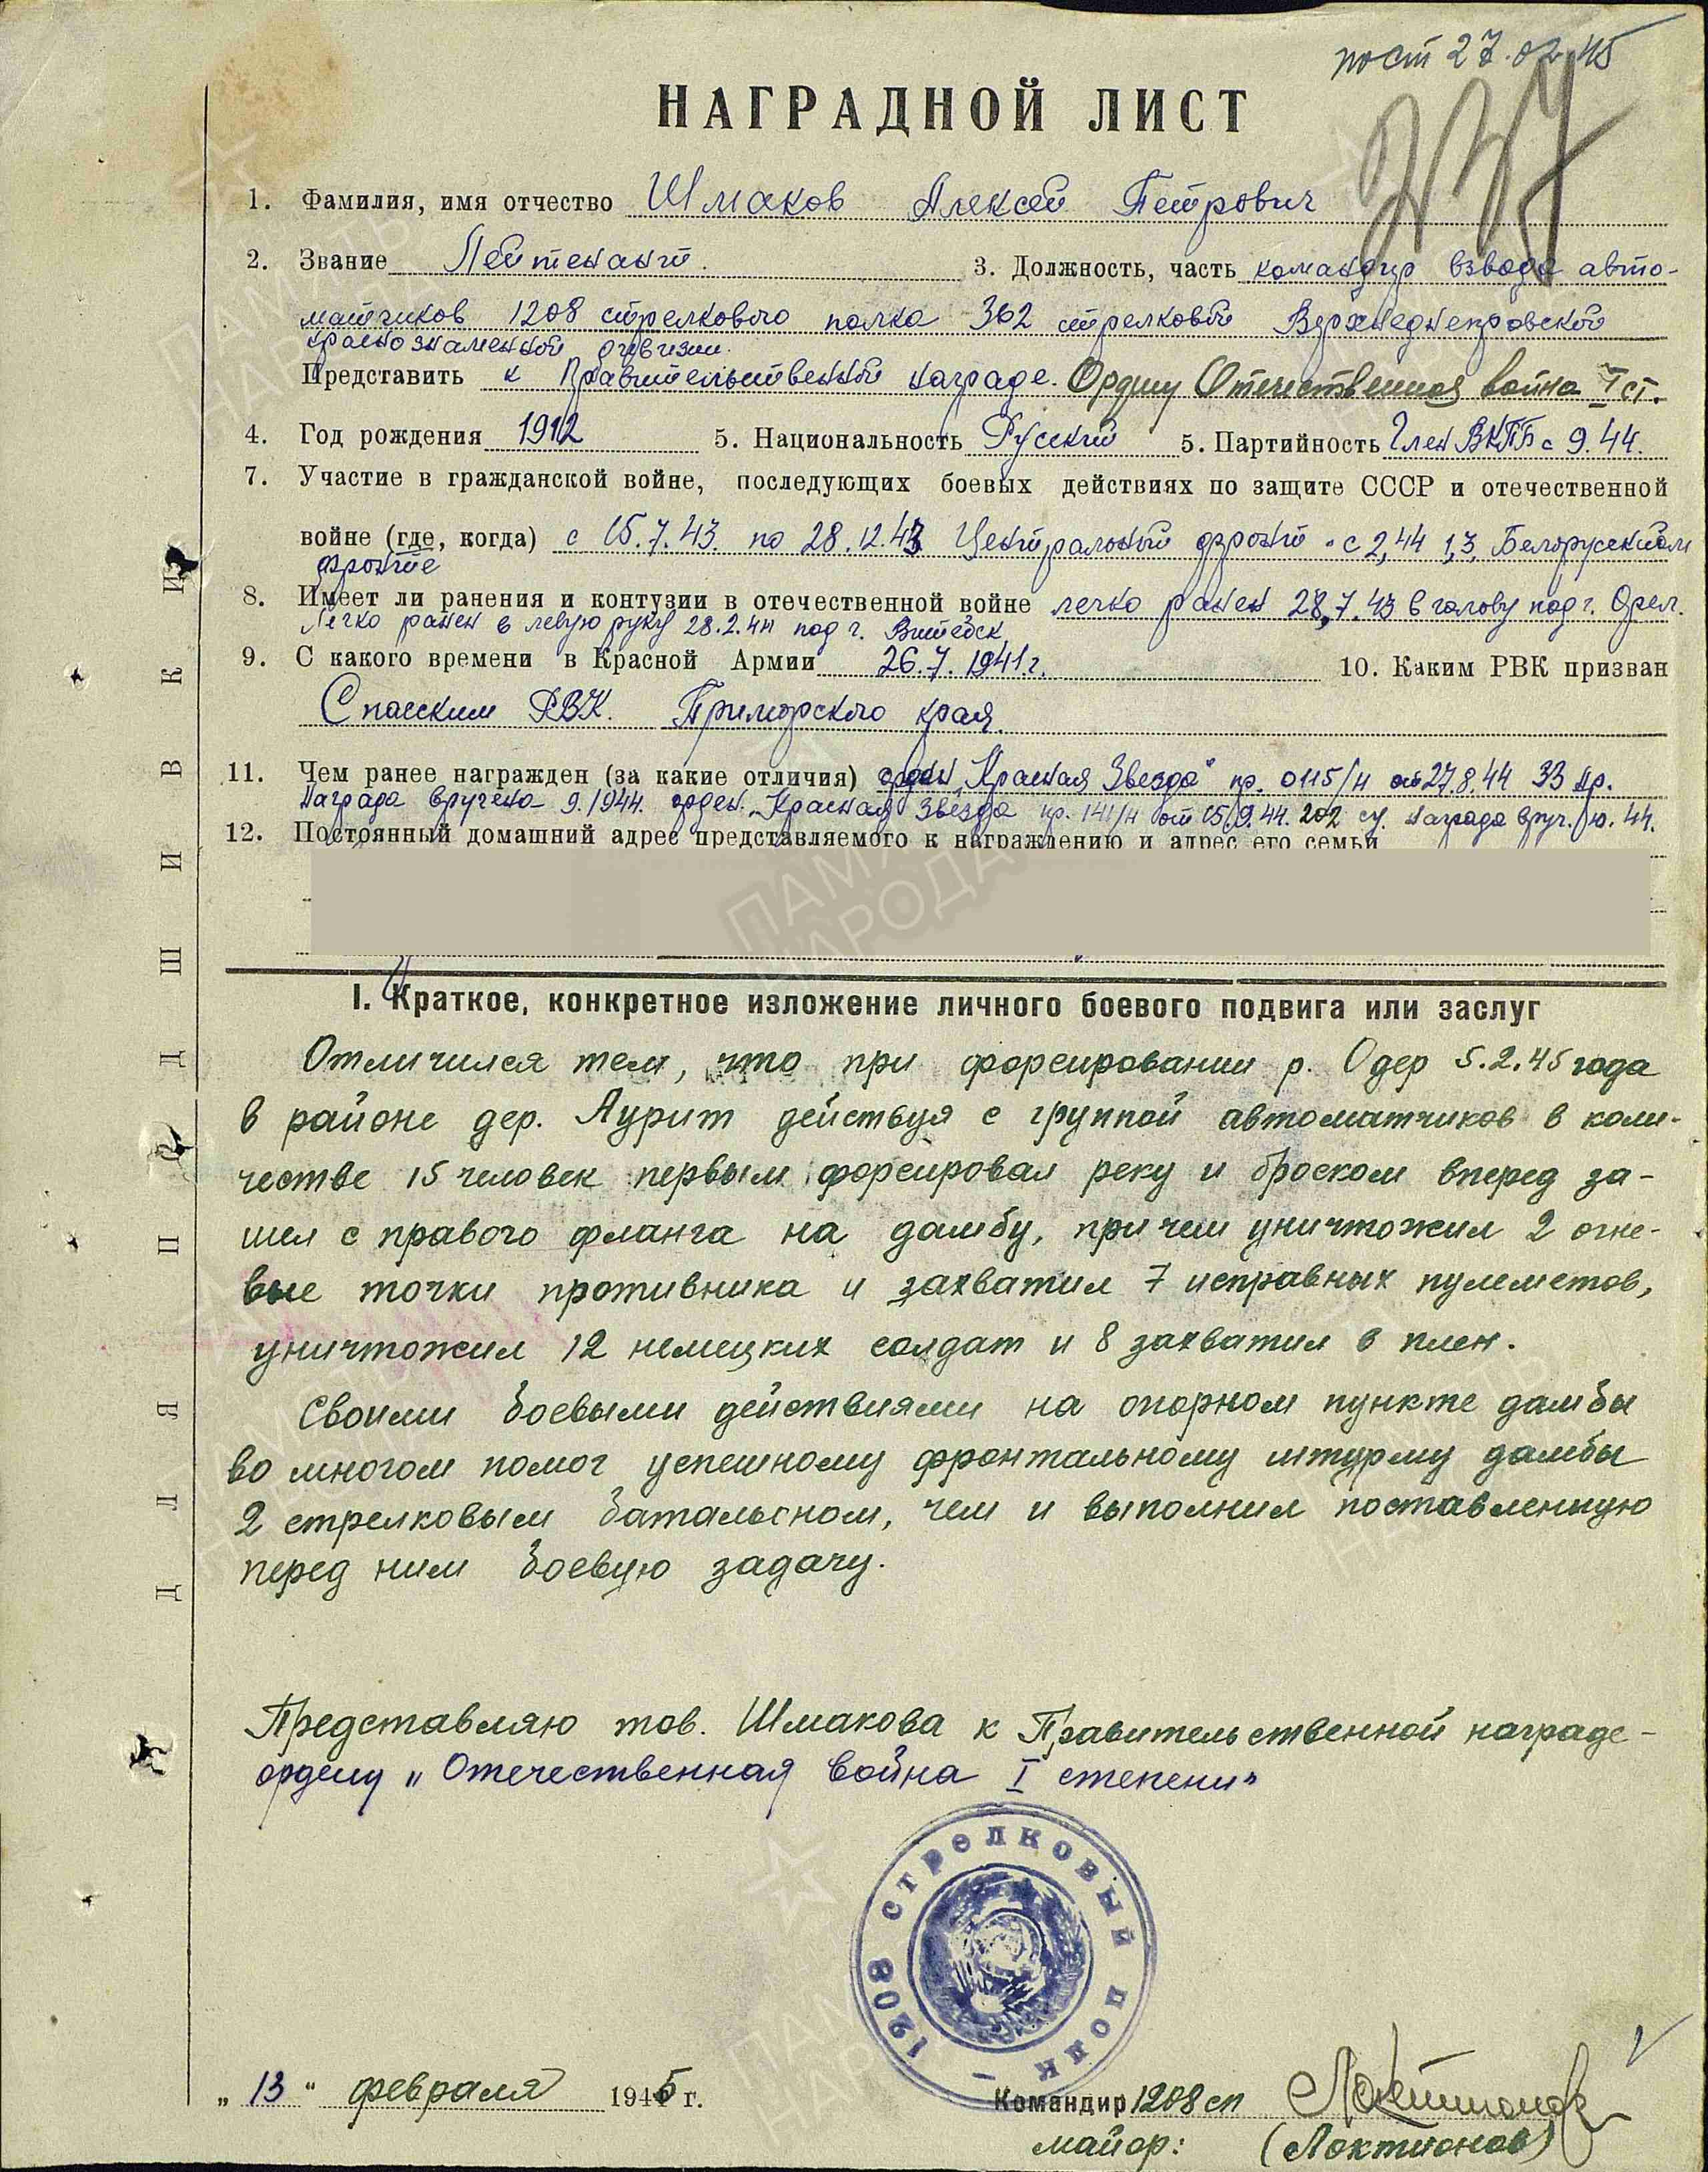 пост 27.02.45
НАГРАДНОЙ ЛИСТ
1. Фамилия, имя отчество Шмаков Алексей Петрович
2. Звание Лейтенант. 3. Должность, часть командир взвода авто-
матчиков 1208 стрелкового полка 362 стрелковой Верхнеднепровской
краснознаменной дивизии.
Представить к Правительственной награде. Ордену Отечественная война I ст.
4. Год рождения 1912 5. Национальность Русский 5. Партийность Член ВКПБ с 9.44.
7. Участие в гражданской войне, последующих боевых действиях по защите СССР и отечественной
войне (где, когда) с 15.7.43. по 28.12.43 Центральный фронт с 2,44 1,3, Белорусском
фронте
8. Имеет ли ранения и контузии в отечественной войне легко ранен 28,7.43 в голову под г. Орел.
Легко ранен в левую руку 28.2.44 под г. Витебск
9. С какого времени в Красной Армии 26.7.1941.г. 10. Каким РВК призван
Спасским РВК. Приморского края.
11. Чем ранее награжден (за какие отличия) орден „Красная Звезда" пр. 0115/н от 27.8.44 33 Ар.
Награда вручена 9.1944. орден. „Красная Звезда пр. 141/н от 15.9.44. 202 сд. награда вруч. 10.44.
12. Постоянный домашний адрес представляемого к награждению и адрес его семьи
I. Краткое, конкретное изложение личного боевого подвига или заслуг
Отличился тем, что при форсировании р. Одер 5.2.45 года
в районе дер. Аурит действуя с группой автоматчиков в коли-
честве 15 человек первым форсировал реку и броском вперед за-
шел с правого фланга на дамбу, при чем уничтожил 2 огне-
вые точки противника и захватил 7 исправных пулеметов,
уничтожил 12 немецких солдат и 8 захватил в плен.
Своими боевыми действиями на опорном пункте дамбы
во многом помог успешному фронтальному штурму дамбы
2 стрелковым батальоном, чем и выполнил поставленную
перед ним боевую задачу.
Представляю тов. Шмакова к Правительственной награде-
ордену „Отечественная война I степени"
1208 СТРЕЛКОВЫЙ ПОЛК
„13" февраля 1945 г.
Командир 1208 сп
майор: (Локтионов)
ДЛЯ ПОДШИВКИ
ПАМЯТЬ НАРОДА